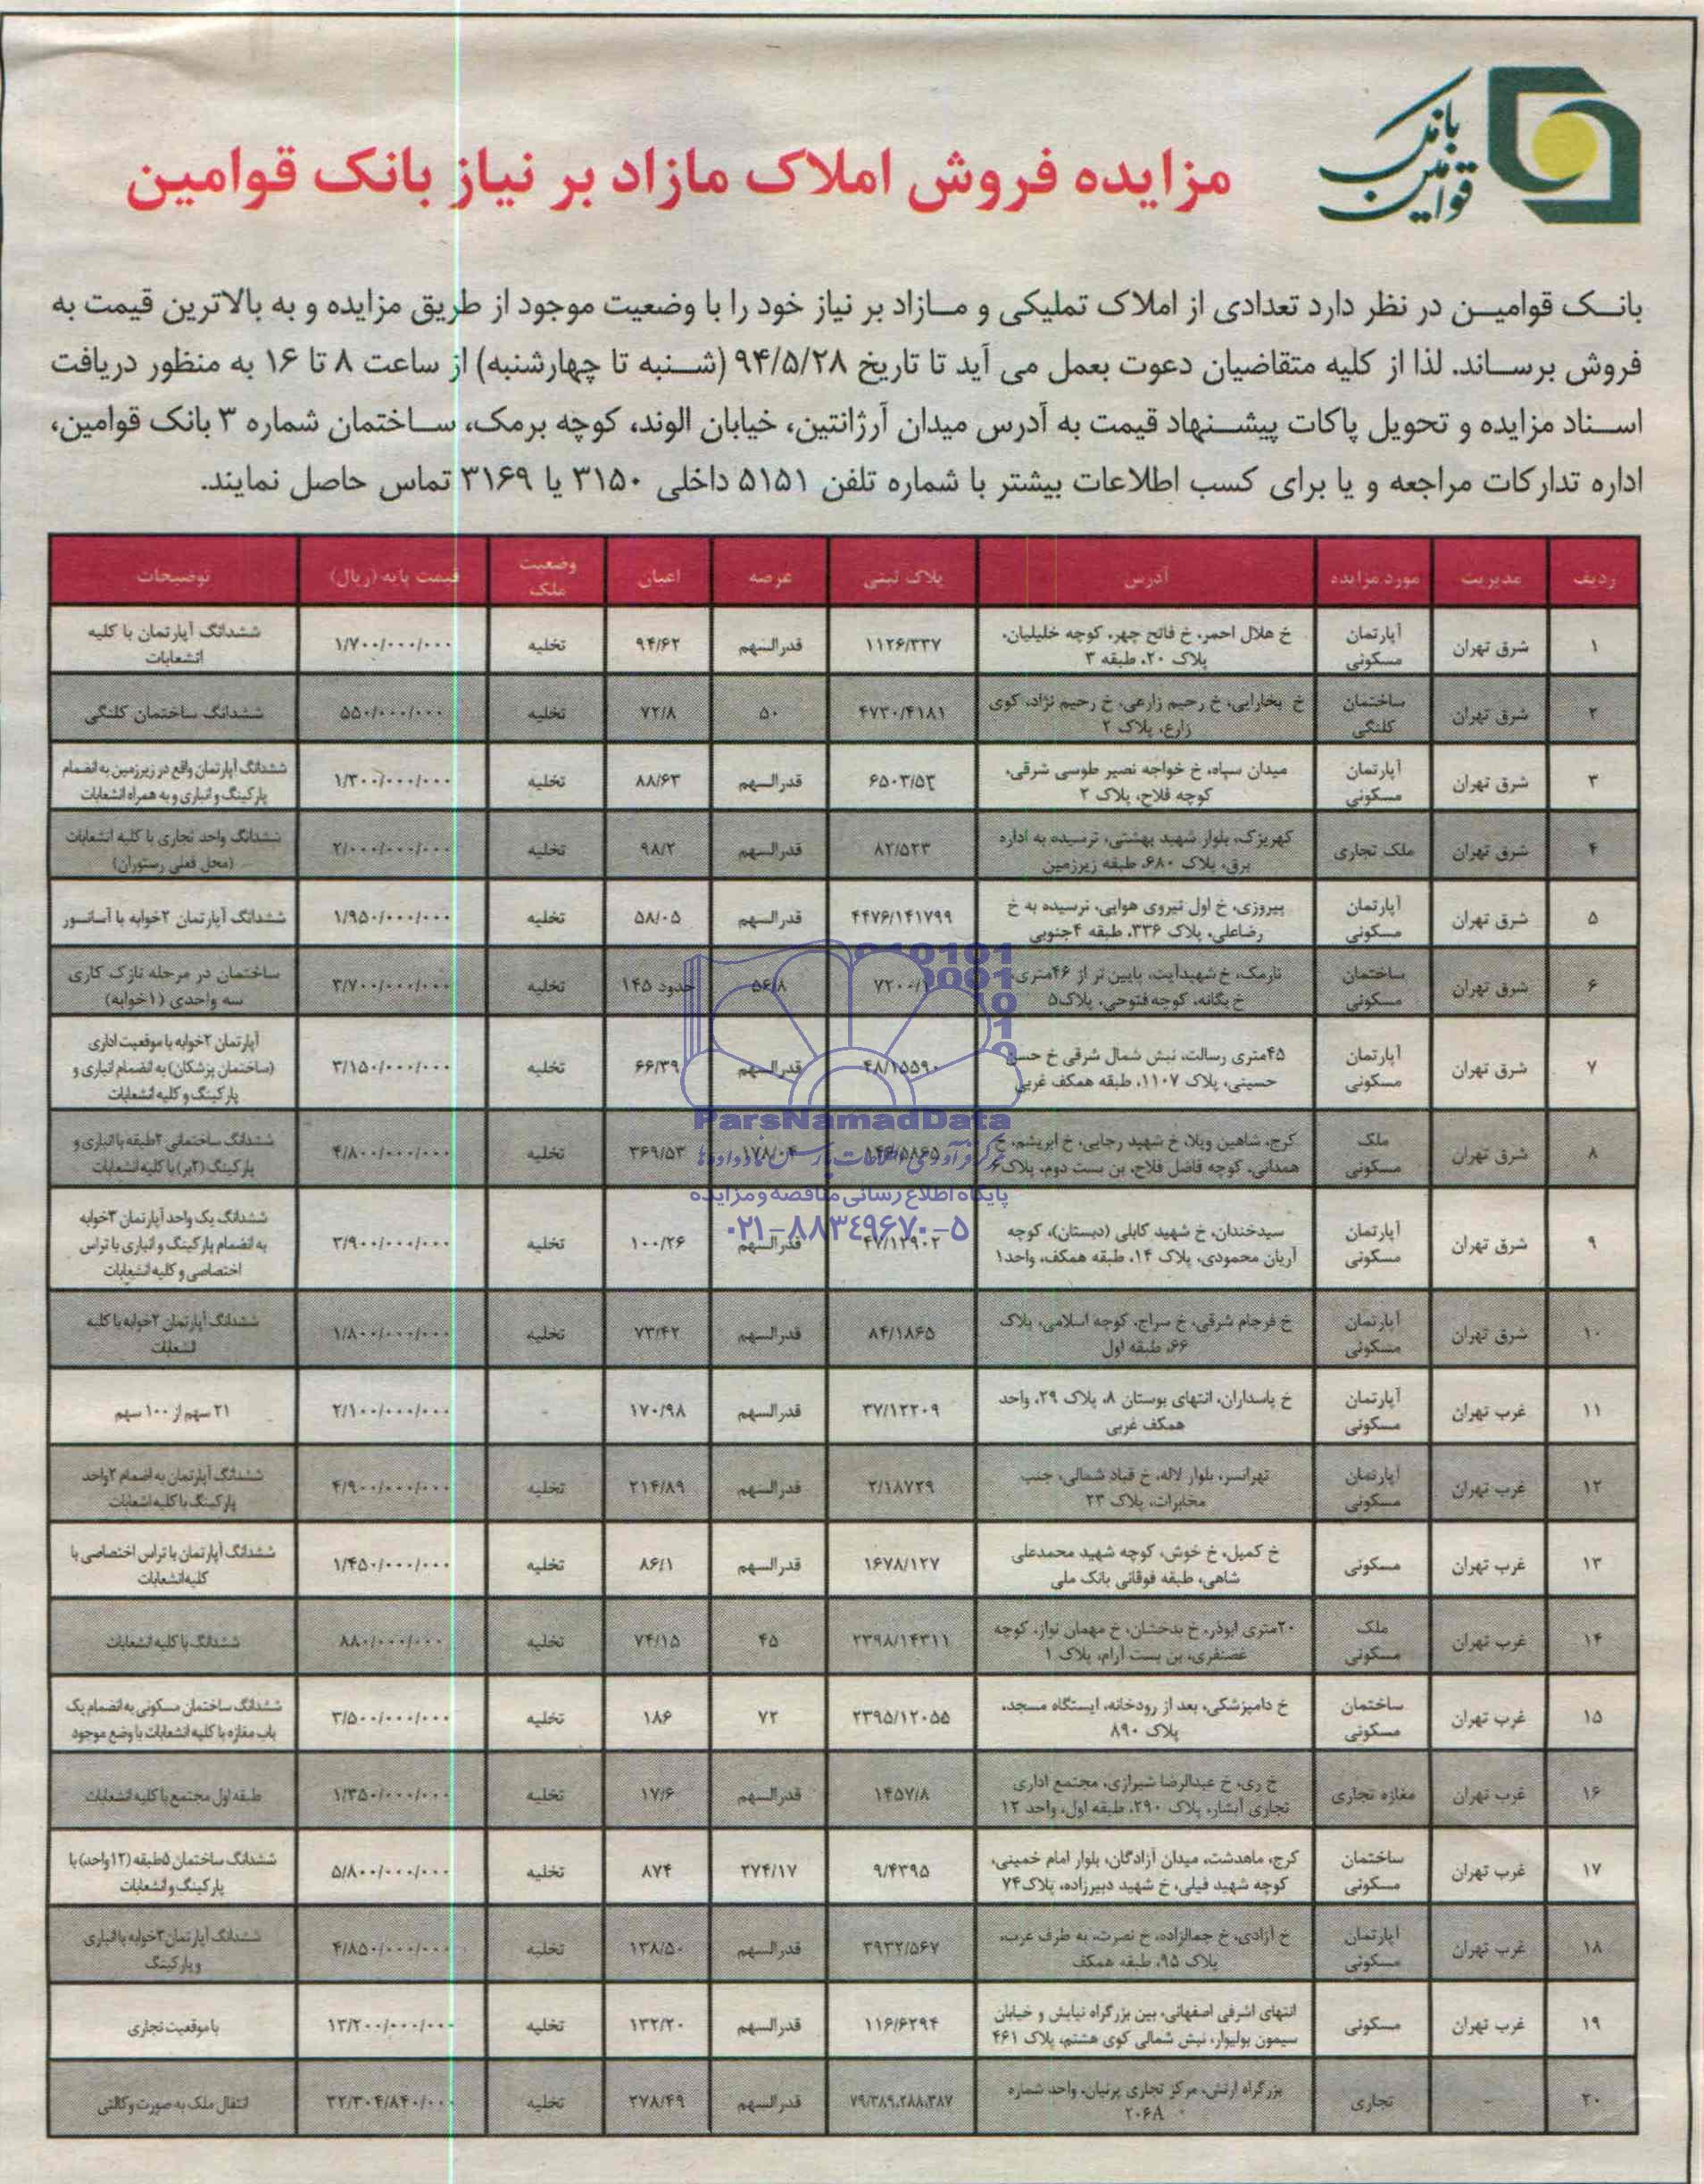 بانک
قوامین
مزایده فروش املاک مازاد بر نیاز بانک قوامین
بانک قوامین در نظر دارد تعدادی از املاک تملیکی و مازاد بر نیاز خود را با وضعیت موجود از طریق مزایده و به بالاترین قیمت به
فروش برساند. لذا از کلیه متقاضیان دعوت بعمل می آید تا تاریخ ۹۴/۵/۲۸ (شنبه تا چهارشنبه) از ساعت ۸ تا ۱۶ به منظور دریافت
اسناد مزایده و تحویل پاکات پیشنهاد قیمت به آدرس میدان آرژانتین، خیابان الوند، کوچه برمک، ساختمان شماره ۳ بانک قوامین،
اداره تدارکات مراجعه و یا برای کسب اطلاعات بیشتر با شماره تلفن ۵۱۵۱ داخلی ۳۱۵۰ یا ۳۱۶۹ تماس حاصل نمایند.
ردیف مدیریت مورد مزایده آدرس پلاک ثبتی عرصه اعیان وضعیت ملک قیمت پایه (ریال) توضیحات
۱ شرق تهران آپارتمان مسکونی خ هلال احمر، خ فاتح چهر، کوچه خلیلیان، پلاک ۲۰، طبقه ۳ ۱۱۲۶/۳۳۷ قدرالسهم ۹۴/۶۲ تخلیه ۱/۷۰۰/۰۰۰/۰۰۰ ششدانگ آپارتمان با کلیه انشعابات
۲ شرق تهران ساختمان کلنگی خ بخارایی، خ رحیم زارعی، خ رحیم نژاد، کوی زارع، پلاک ۲ ۴۷۳۰/۴۱۸۱ ۵۰ ۷۲/۸ تخلیه ۵۵۰/۰۰۰/۰۰۰ ششدانگ ساختمان کلنگی
۳ شرق تهران آپارتمان مسکونی میدان سپاه، خ خواجه نصیر طوسی شرقی، کوچه فلاح، پلاک ۲ ۶۵۰۳/۵۳ قدرالسهم ۸۸/۶۳ تخلیه ۱/۳۰۰/۰۰۰/۰۰۰ ششدانگ آپارتمان واقع در زیرزمین به انضمام پارکینگ و انباری و به همراه انشعابات
۴ شرق تهران ملک تجاری کهریزک، بلوار شهید بهشتی، نرسیده به اداره برق، پلاک ۶۸۰، طبقه زیرزمین ۸۲/۵۲۳ قدرالسهم ۹۸/۲ تخلیه ۲/۰۰۰/۰۰۰/۰۰۰ ششدانگ واحد تجاری با کلیه انشعابات (محل فعلی رستوران)
۵ شرق تهران آپارتمان مسکونی پیروزی، خ اول نیروی هوایی، نرسیده به خ رضاعلی، پلاک ۳۳۶، طبقه ۴جنوبی ۴۴۷۶/۱۴۱۷۹۹ قدرالسهم ۵۸/۰۵ تخلیه ۱/۹۵۰/۰۰۰/۰۰۰ ششدانگ آپارتمان ۲خوابه با آسانسور
۶ شرق تهران ساختمان مسکونی نارمک، خ شهیدآیت، پایین تر از ۴۶متری، خ یگانه، کوچه فتوحی، پلاک۵ ۵۶/۸ حدود ۱۴۵ تخلیه ۳/۷۰۰/۰۰۰/۰۰۰ ساختمان در مرحله نازک کاری سه واحدی (۱خوابه)
۷ شرق تهران آپارتمان مسکونی ۴۵متری رسالت، نبش شمال شرقی خ حسن حسینی، پلاک ۱۱۰۷، طبقه همکف غربی ۴۸/۱۵۵۹۰ قدرالسهم ۶۶/۳۹ تخلیه ۳/۱۵۰/۰۰۰/۰۰۰ آپارتمان ۲خوابه با موقعیت اداری (ساختمان پزشکان) به انضمام انباری و پارکینگ و کلیه انشعابات
۸ شرق تهران ملک مسکونی کرج، شاهین ویلا، خ شهید رجایی، خ ابریشم، خ همدانی، کوچه فاضل فلاح، بن بست دوم، پلاک۶ ۱۷۸/۰۴ ۳۶۹/۵۳ تخلیه ۴/۸۰۰/۰۰۰/۰۰۰ ششدانگ ساختمانی ۲طبقه با انباری و پارکینگ (۲بر) با کلیه انشعابات
۹ شرق تهران آپارتمان مسکونی سیدخندان، خ شهید کابلی (دبستان)، کوچه آریان محمودی، پلاک ۱۴، طبقه همکف، واحد۱ ۴۷/۱۲۹۰۲ قدرالسهم ۱۰۰/۲۶ تخلیه ۳/۹۰۰/۰۰۰/۰۰۰ ششدانگ یک واحد آپارتمان ۳خوابه به انضمام پارکینگ و انباری با تراس اختصاصی و کلیه انشعابات
۱۰ شرق تهران آپارتمان مسکونی خ فرجام شرقی، خ سراج، کوچه اسلامی، پلاک ۶۶، طبقه اول ۸۴/۱۸۶۵ قدرالسهم ۷۳/۴۲ تخلیه ۱/۸۰۰/۰۰۰/۰۰۰ ششدانگ آپارتمان ۲خوابه با کلیه انشعابات
۱۱ غرب تهران آپارتمان مسکونی خ پاسداران، انتهای بوستان ۸، پلاک ۲۹، واحد همکف غربی ۳۷/۱۲۲۰۹ قدرالسهم ۱۷۰/۹۸ - ۲/۱۰۰/۰۰۰/۰۰۰ ۲۱ سهم از ۱۰۰ سهم
۱۲ غرب تهران آپارتمان مسکونی تهرانسر، بلوار لاله، خ قباد شمالی، جنب مخابرات، پلاک ۲۳ ۲/۱۸۷۲۹ قدرالسهم ۲۱۴/۸۹ تخلیه ۴/۹۰۰/۰۰۰/۰۰۰ ششدانگ آپارتمان به اضمام ۲واحد پارکینگ با کلیه انشعابات
۱۳ غرب تهران مسکونی خ کمیل، خ خوش، کوچه شهید محمدعلی شاهی، طبقه فوقانی بانک ملی ۱۶۷۸/۱۲۷ قدرالسهم ۸۶/۱ تخلیه ۱/۴۵۰/۰۰۰/۰۰۰ ششدانگ آپارتمان با تراس اختصاصی با کلیه انشعابات
۱۴ غرب تهران ملک مسکونی ۲۰متری ابوذر، خ بدخشان، خ مهمان نواز، کوچه غضنفری، بن بست آرام، پلاک ۱ ۲۳۹۸/۱۴۳۱۱ ۴۵ ۷۴/۱۵ تخلیه ۸۸۰/۰۰۰/۰۰۰ ششدانگ با کلیه انشعابات
۱۵ غرب تهران ساختمان مسکونی خ دامپزشکی، بعد از رودخانه، ایستگاه مسجد، پلاک ۸۹۰ ۲۳۹۵/۱۲۰۵۵ ۷۲ ۱۸۶ تخلیه ۳/۵۰۰/۰۰۰/۰۰۰ ششدانگ ساختمان مسکونی به انضمام یک باب مغازه با کلیه انشعابات با وضع موجود
۱۶ غرب تهران مغازه تجاری خ ری، خ عبدالرضا شیرازی، مجتمع اداری تجاری آبشار، پلاک ۲۹۰، طبقه اول، واحد ۱۲ ۱۴۵۷/۸ قدرالسهم ۱۷/۶ تخلیه ۱/۳۵۰/۰۰۰/۰۰۰ طبقه اول مجتمع با کلیه انشعابات
۱۷ غرب تهران ساختمان مسکونی کرج، ماهدشت، میدان آزادگان، بلوار امام خمینی، کوچه شهید فیلی، خ شهید دبیرزاده، پلاک۷۴ ۹/۴۳۹۵ ۲۷۴/۱۷ ۸۷۴ تخلیه ۵/۸۰۰/۰۰۰/۰۰۰ ششدانگ ساختمان ۵طبقه (۱۲واحد) با پارکینگ و انشعابات
۱۸ غرب تهران آپارتمان مسکونی خ آزادی، خ جمالزاده، خ نصرت، به طرف غرب، پلاک ۹۵، طبقه همکف ۳۹۳۲/۵۶۷ قدرالسهم ۱۳۸/۵۰ تخلیه ۴/۸۵۰/۰۰۰/۰۰۰ ششدانگ آپارتمان ۳خوابه با انباری و پارکینگ
۱۹ غرب تهران مسکونی انتهای اشرفی اصفهانی، بین بزرگراه نیایش و خیابان سیمون بولیوار، نبش شمالی کوی هشتم، پلاک ۴۶۱ ۱۱۶/۶۲۹۴ قدرالسهم ۱۳۲/۲۰ تخلیه ۱۳/۲۰۰/۰۰۰/۰۰۰ با موقعیت تجاری
۲۰ - تجاری بزرگراه ارتش، مرکز تجاری پرنیان، واحد شماره ۲۰۶A ۷۹/۳۸۹،۳۸۸،۳۸۷ قدرالسهم ۲۷۸/۴۹ تخلیه ۳۲/۳۰۴/۸۴۰/۰۰۰ انتقال ملک به صورت وکالتی
ParsNamadData
پایگاه اطلاع رسانی مناقصه و مزایده
۰۲۱-۸۸۳۴۹۶۷۰-۵